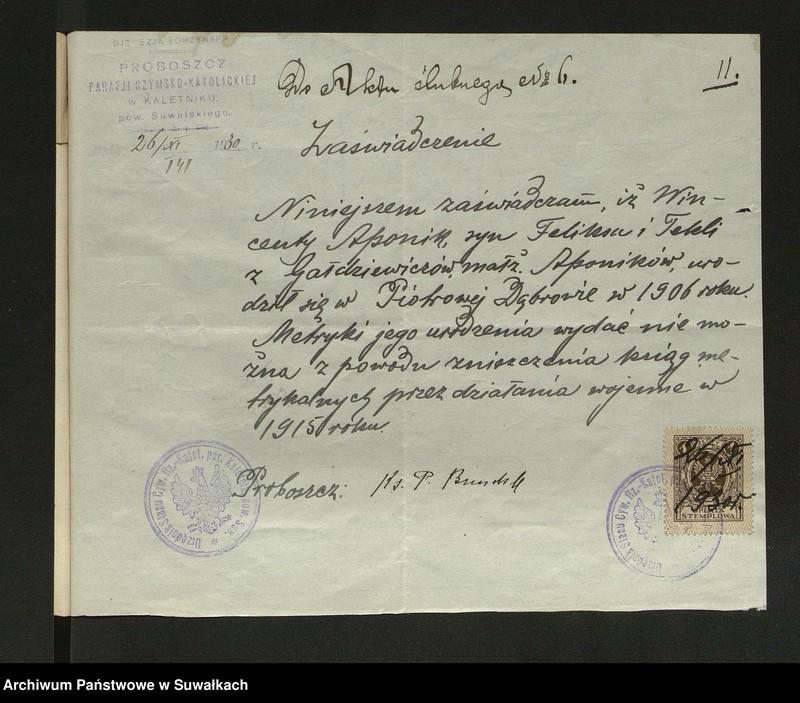 DJECEZJA ŁOMŻYŃSKA
PROBOSZCZ
PARAFJI RZYMSKO-KATOLICKIEJ
w KALETNIKU,
pow. Suwalskiego.
26/XI 1930 r.
141
Do Aktu ślubnego № 6.
11.
Zaświadczenie
Niniejszem zaświadczam, iż Win-
centy Aponik, syn Feliksa i Tekli
z Gałdziewiczów, małż. Aponików, uro-
dził się w Piotrowej Dąbrowie w 1906 roku.
Metryki jego urodzenia wydać nie mo-
żna z powodu zniszczenia ksiąg me-
trykalnych przez działania wojenne w
1915 roku.
Proboszcz: Ks. P.
Urzędnik Stanu Cyw. Rz.-Katol. par.
Urzędnik Stanu Cyw. Rz.-Katol.
OPŁATA
STEMPLOWA
Archiwum Państwowe w Suwałkach